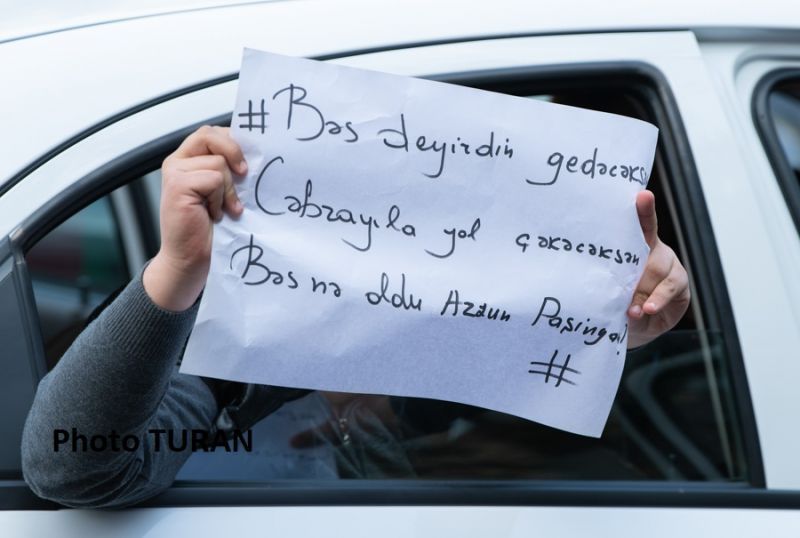 #Bəs deyirdin gedəcəksən
Cəbrayıla yol çəkəcəksən
Bəs nə oldu Azzun Paşinyan!
#
Photo TURAN